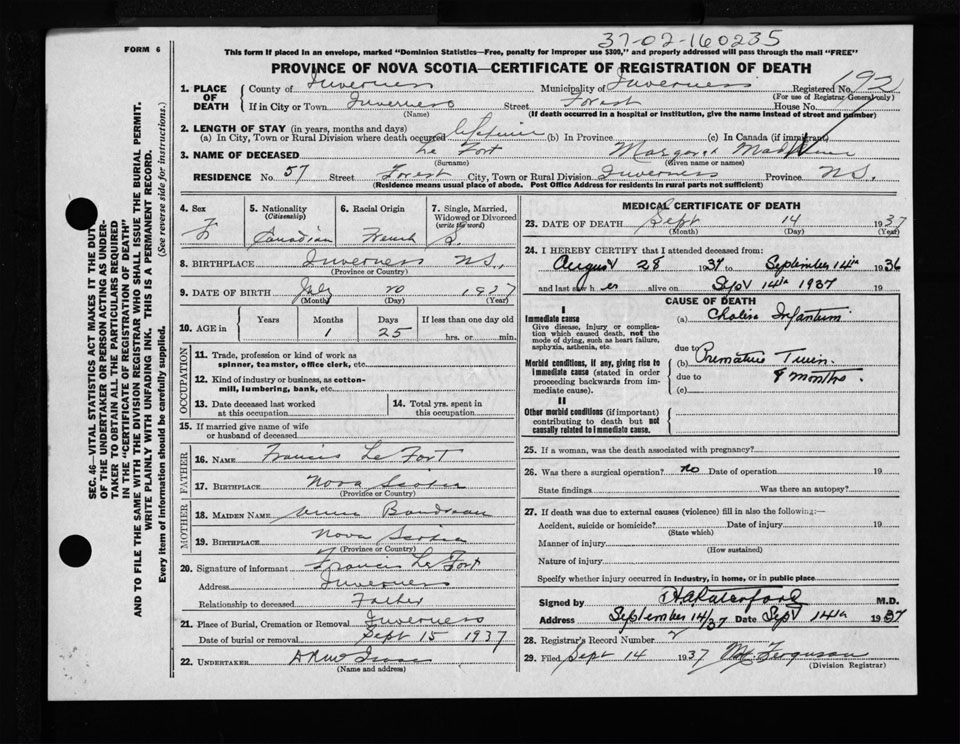 37-02-160235
FORM 6
This form if placed in an envelope, marked "Dominion Statistics—Free, penalty for improper use $300," and properly addressed will pass through the mail "FREE"
PROVINCE OF NOVA SCOTIA—CERTIFICATE OF REGISTRATION OF DEATH
192
1. PLACE OF DEATH County of Inverness Municipality of Inverness Registered No.
(For use of Registrar General only)
If in City or Town Inverness Street Forest House No.
(Name) (If death occurred in a hospital or institution, give the name instead of street and number)
2. LENGTH OF STAY (in years, months and days)
(a) In City, Town or Rural Division where death occurred Lifetime (b) In Province (c) In Canada (if immigrant)
3. NAME OF DECEASED Le Fort Margaret
(Surname) (Given name or names)
RESIDENCE No. 57 Street Forest City, Town or Rural Division Inverness Province N.S.
(Residence means usual place of abode. Post Office Address for residents in rural parts not sufficient)
SEC. 46—VITAL STATISTICS ACT MAKES IT THE DUTY
OF THE UNDERTAKER OR PERSON ACTING AS UNDER-
TAKER TO OBTAIN ALL THE PARTICULARS REQUIRED
IN THE "CERTIFICATE OF REGISTRATION OF DEATH"
AND TO FILE THE SAME WITH THE DIVISION REGISTRAR WHO SHALL ISSUE THE BURIAL PERMIT.
WRITE PLAINLY WITH UNFADING INK. THIS IS A PERMANENT RECORD.
Every item of information should be carefully supplied. (See reverse side for instructions.)
4. Sex F
5. Nationality (Citizenship) Canadian
6. Racial Origin French
7. Single, Married, Widowed or Divorced (write the word) S.
8. BIRTHPLACE Inverness N.S.,
(Province or Country)
9. DATE OF BIRTH July 20 1937
(Month) (Day) (Year)
10. AGE in Years Months Days If less than one day old
1 25 hrs. or min.
OCCUPATION
11. Trade, profession or kind of work as
spinner, teamster, office clerk, etc.
12. Kind of industry or business, as cotton-
mill, lumbering, bank, etc.
13. Date deceased last worked
at this occupation
14. Total yrs. spent in
this occupation
15. If married give name of wife
or husband of deceased
FATHER
16. NAME Francis Le Fort
17. BIRTHPLACE Nova Scotia
(Province or Country)
MOTHER
18. MAIDEN NAME Boudreau
19. BIRTHPLACE Nova Scotia
(Province or Country)
20. Signature of informant Francis Le Fort
Address Inverness
Relationship to deceased Father
21. Place of Burial, Cremation or Removal Inverness
Date of burial or removal Sept 15 1937
22. UNDERTAKER
(Name and address)
MEDICAL CERTIFICATE OF DEATH
23. DATE OF DEATH Sept 14 1937
(Month) (Day) (Year)
24. I HEREBY CERTIFY that I attended deceased from:
August 28 1937 to September 14th 1936
and last saw her alive on Sept 14th 1937
CAUSE OF DEATH
I
Immediate cause (a) Cholera Infantum
Give disease, injury or complica-
tion which caused death, not the
mode of dying, such as heart failure,
asphyxia, asthenia, etc.
due to
Morbid conditions, if any, giving rise to
immediate cause (stated in order
proceeding backwards from im-
mediate cause).
(b) Premature Twin.
due to 8 months.
(c)
II
Other morbid conditions (if important)
contributing to death but not
causally related to immediate cause.
25. If a woman, was the death associated with pregnancy?
26. Was there a surgical operation? no Date of operation 19
State findings Was there an autopsy?
27. If death was due to external causes (violence) fill in also the following:—
Accident, suicide or homicide? Date of injury 19
(State which)
Manner of injury
(How sustained)
Nature of injury
Specify whether injury occurred in industry, in home, or in public place
Signed by M.D.
Address September 14/37 Date Sept 14th 1937
28. Registrar's Record Number
29. Filed Sept 14 1937 Ferguson
(Division Registrar)